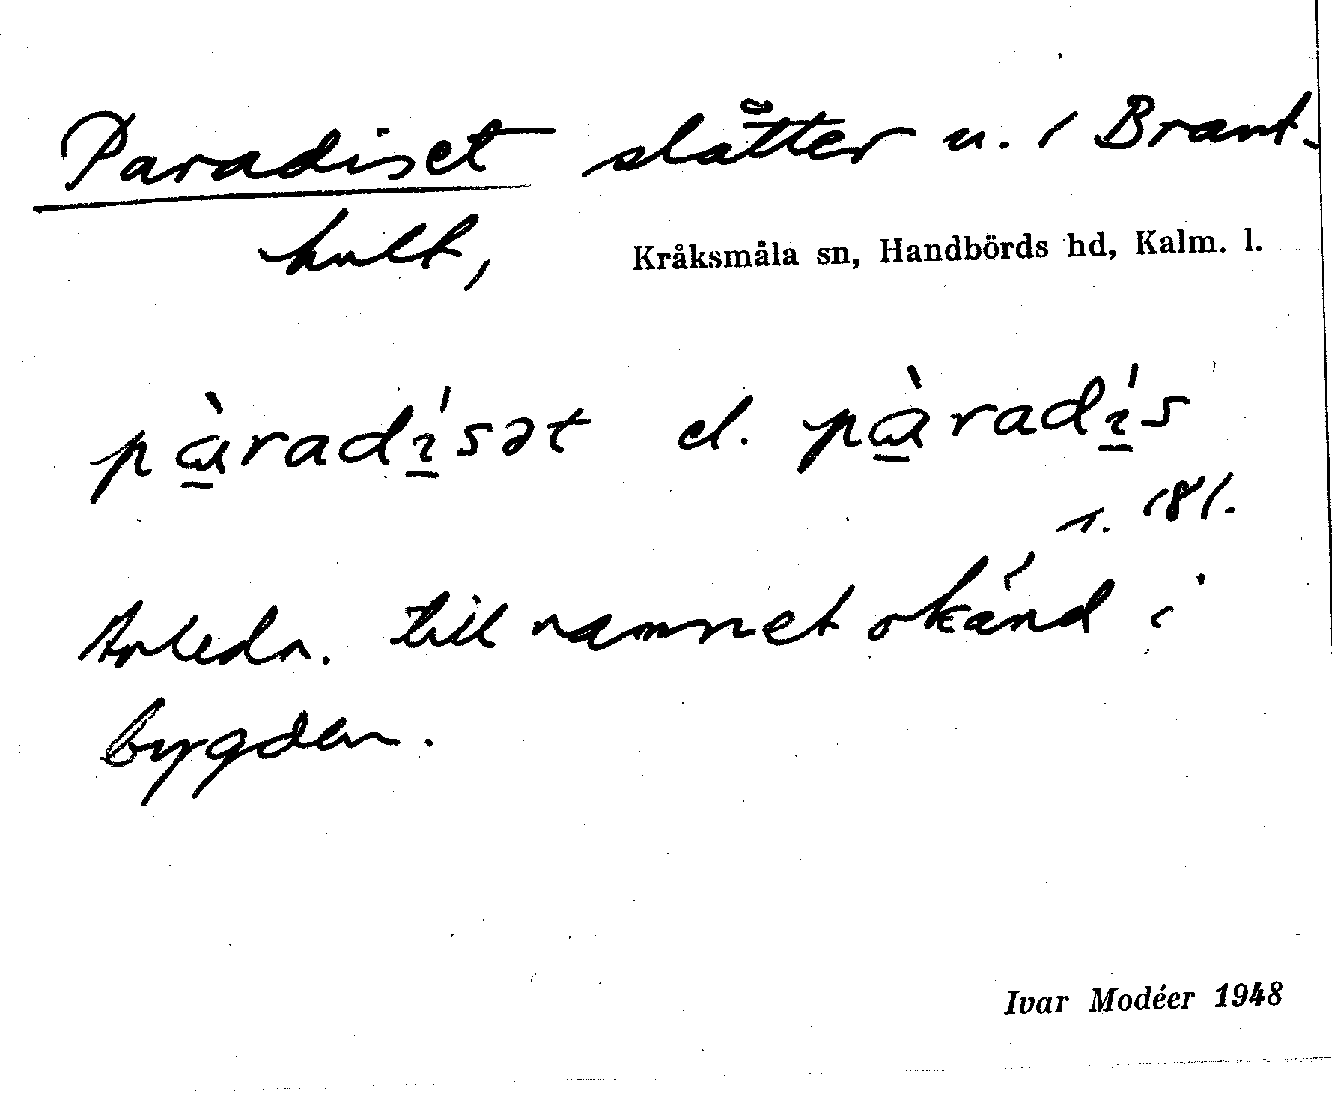 Paradiset slåtter u. / Brant-
hult,
Kråksmåla sn, Handbörds hd, Kalm. l.
pàradísət el. pàradís
s. 181.
Anledn. till namnet okänd i
bygden.
Ivar Modéer 1948